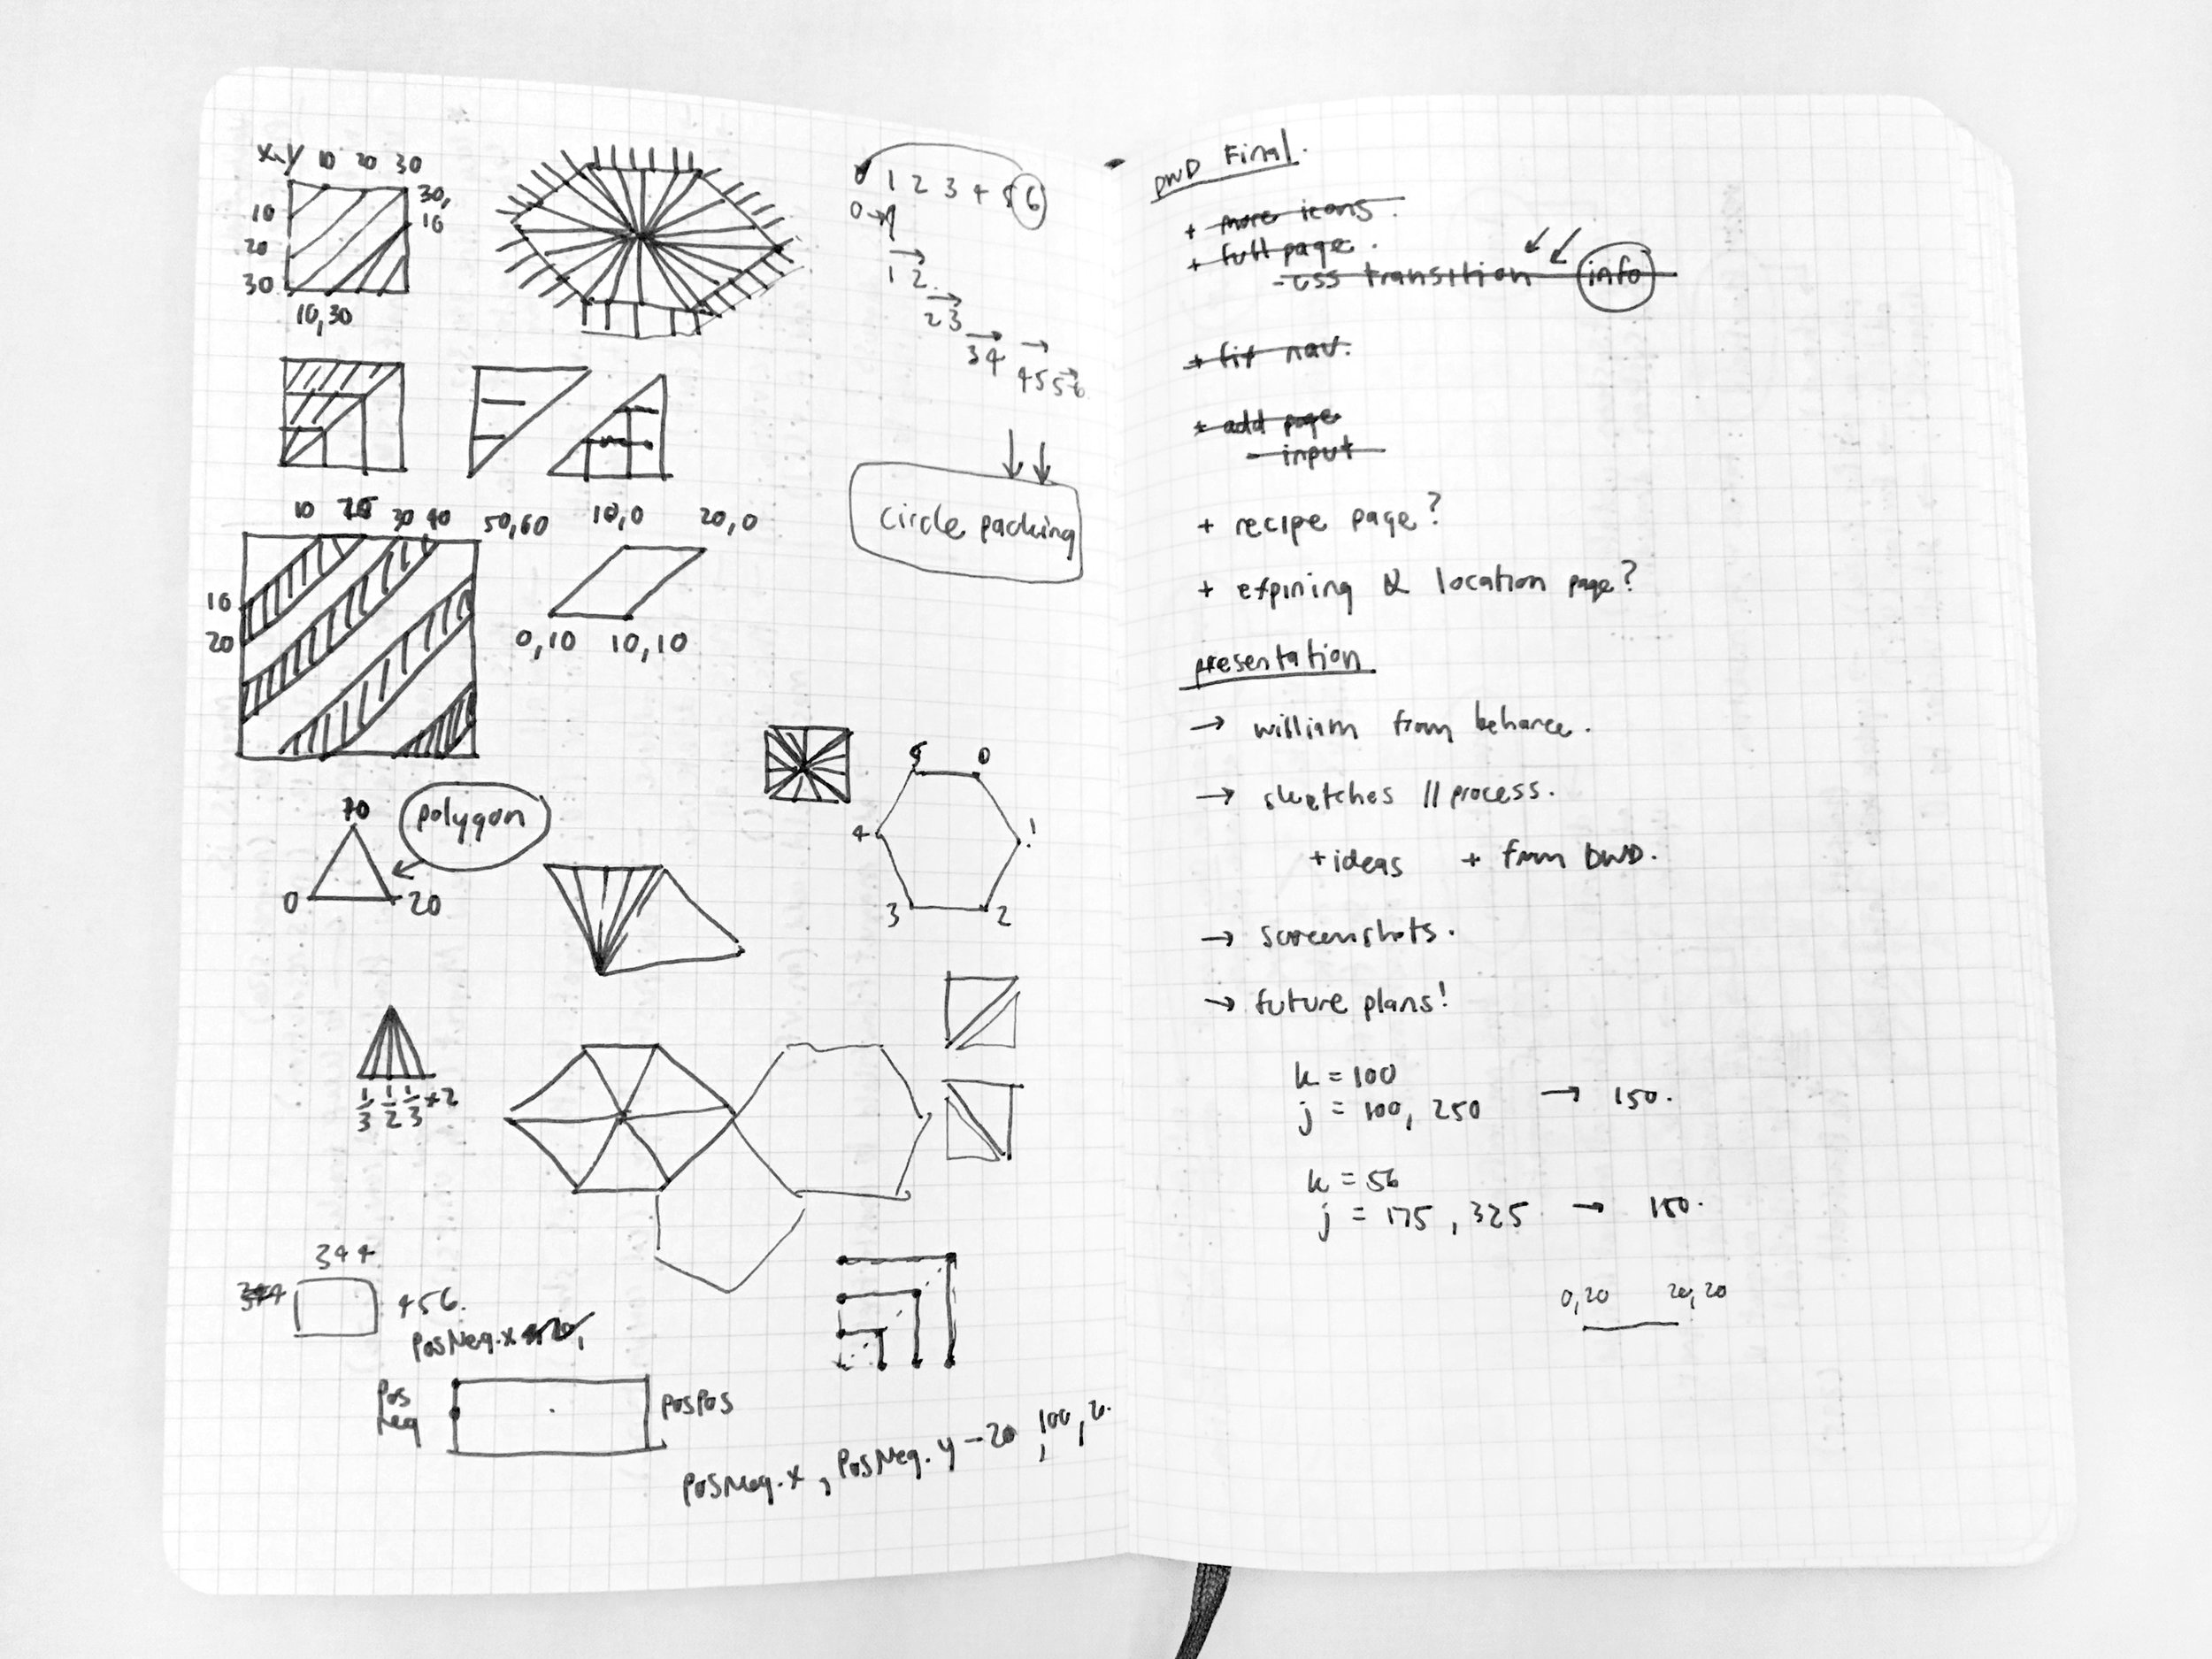 x,y 10 20 30
30,
10
10
20
30
10,30
0 1 2 3 4 5 6
0→1
1 2
2 3
3 4
4 5 5 6
circle packing
10 20 30 40 50,60 10,0 20,0
10
20
0,10 10,10
polygon
10
0 20
5 0
4 1
3 2
1/3 1/2 1/3 x2
344
344 456.
PosNeg.x
Pos
Neg
PosPos
PosNeg.x, PosNeg.y -20, 100, 20
DWD Final.
+ more icons.
+ full page.
- css transition info
+ fix nav.
+ add page
- input
+ recipe page?
+ expiring & location page?
presentation
→ william from behance.
→ sketches || process.
+ ideas + from DWD.
→ screenshots.
→ future plans!
k = 100
j = 100, 250 → 150.
k = 56
j = 175, 325 → 150.
0,20 20,20